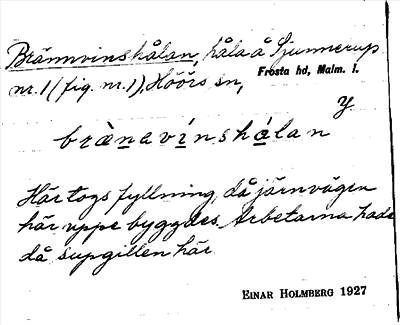 Brännvinshålan, håla å Gunnerup
nr. 1 (fig. nr. 1), Höörs sn, Frosta hd, Malm. l.
y
brànavínshálan
Här togs fyllning, då järnvägen
här uppe byggdes. Arbetarna hade
då supgillen här.
EINAR HOLMBERG 1927